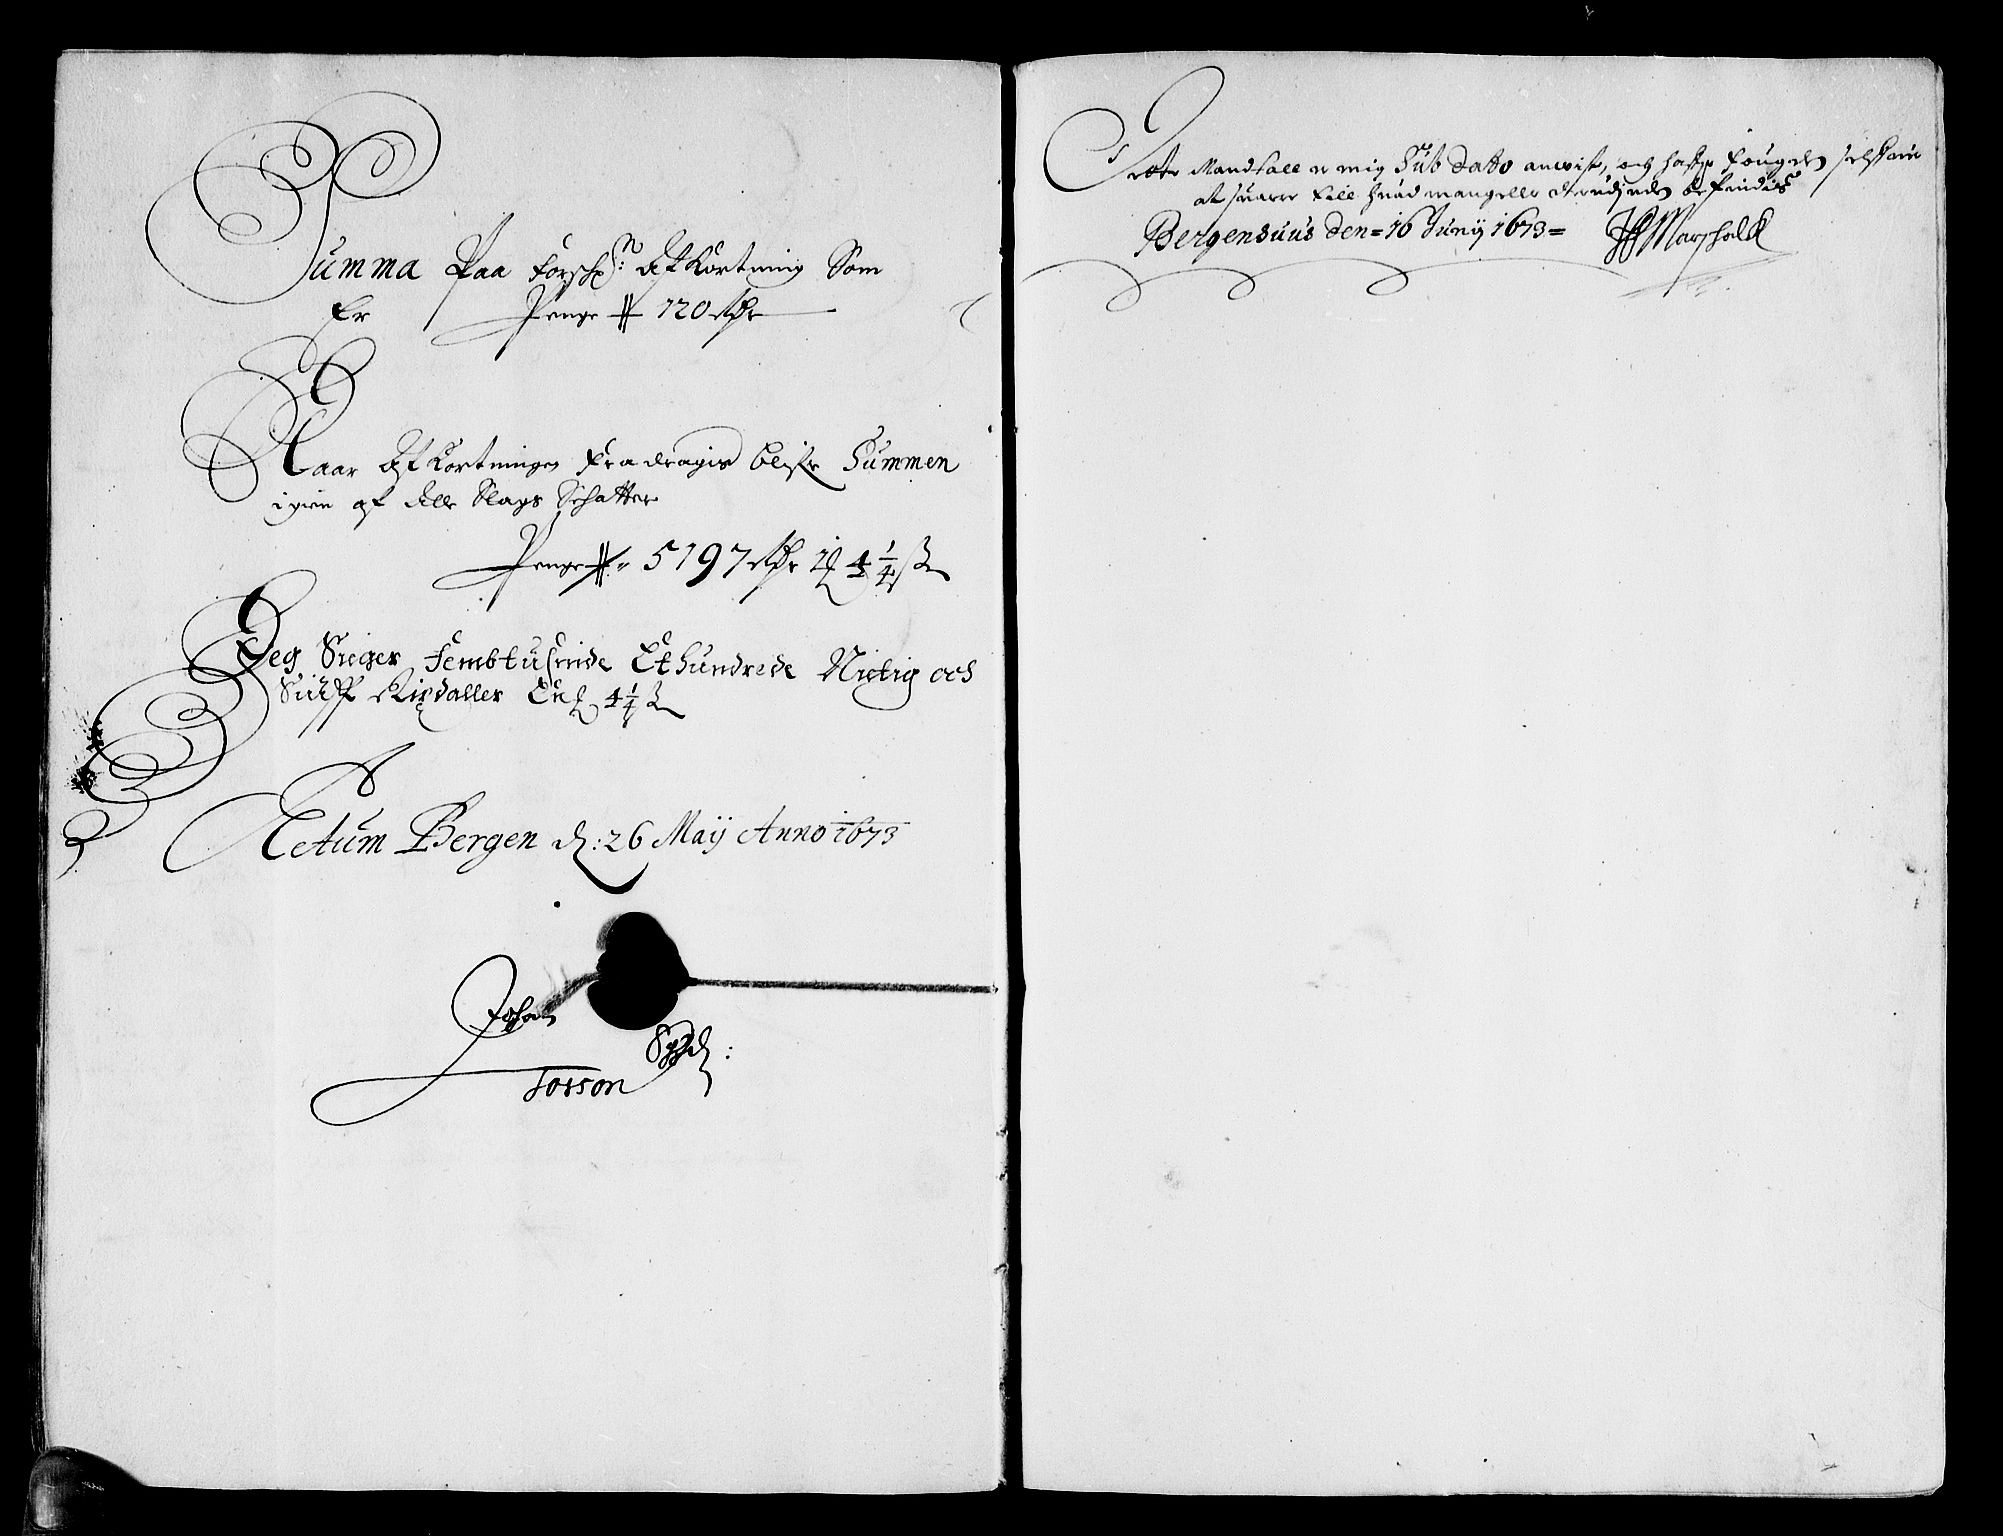 Summa Paa forschn: Afkortning Som
Er Penge # 120 Rdr
Naar Afkortningen fradragis blifr Summen
igien af Alle Slags Schatter
Penge # 5197 Rdr 1 4 1/4 ß
Jeg Siiger Fembtusinde Ethundrede Nietig och
Siuff Rixdaller En 4 1/4 ß
Actum Bergen d: 26 Maij Anno 1673
Johan
Torson
Dette Mandtall er mig Sub Datto anvist, och hafr fougden self
at suare till huad mangell derudinden befindis
Bergenhuus den = 16 Junij 1673 =
Marschalck